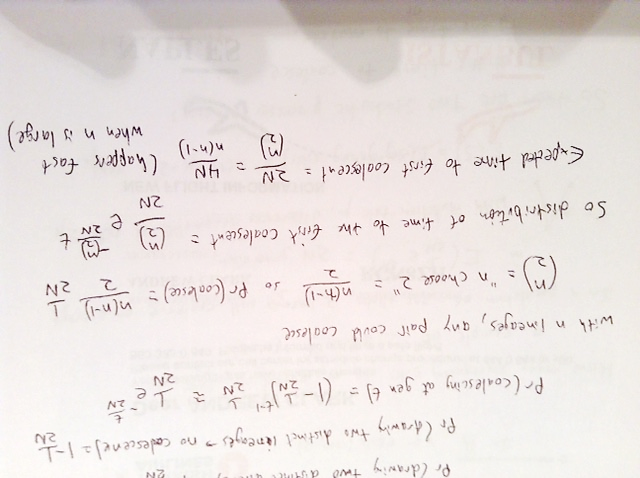 Pr(drawing two distinct
Pr(drawing two distinct lineages → no coalescence) = 1 - 1/2N
Pr(coalescing at gen t) = (1 - 1/2N)^(t-1) 1/2N = 1/2N e^(-t/2N)
with n lineages, any pair could coalesce
(n 2) = "n choose 2" = n(n-1)/2 so Pr(coalesce) = n(n-1)/2 1/2N
So distribution of time to the first coalescent = (n 2)/2N e^(-(n 2)/2N t)
Expected time to first coalescent = 2N/(n 2) = 4N/n(n-1) (happens fast
when n is large)